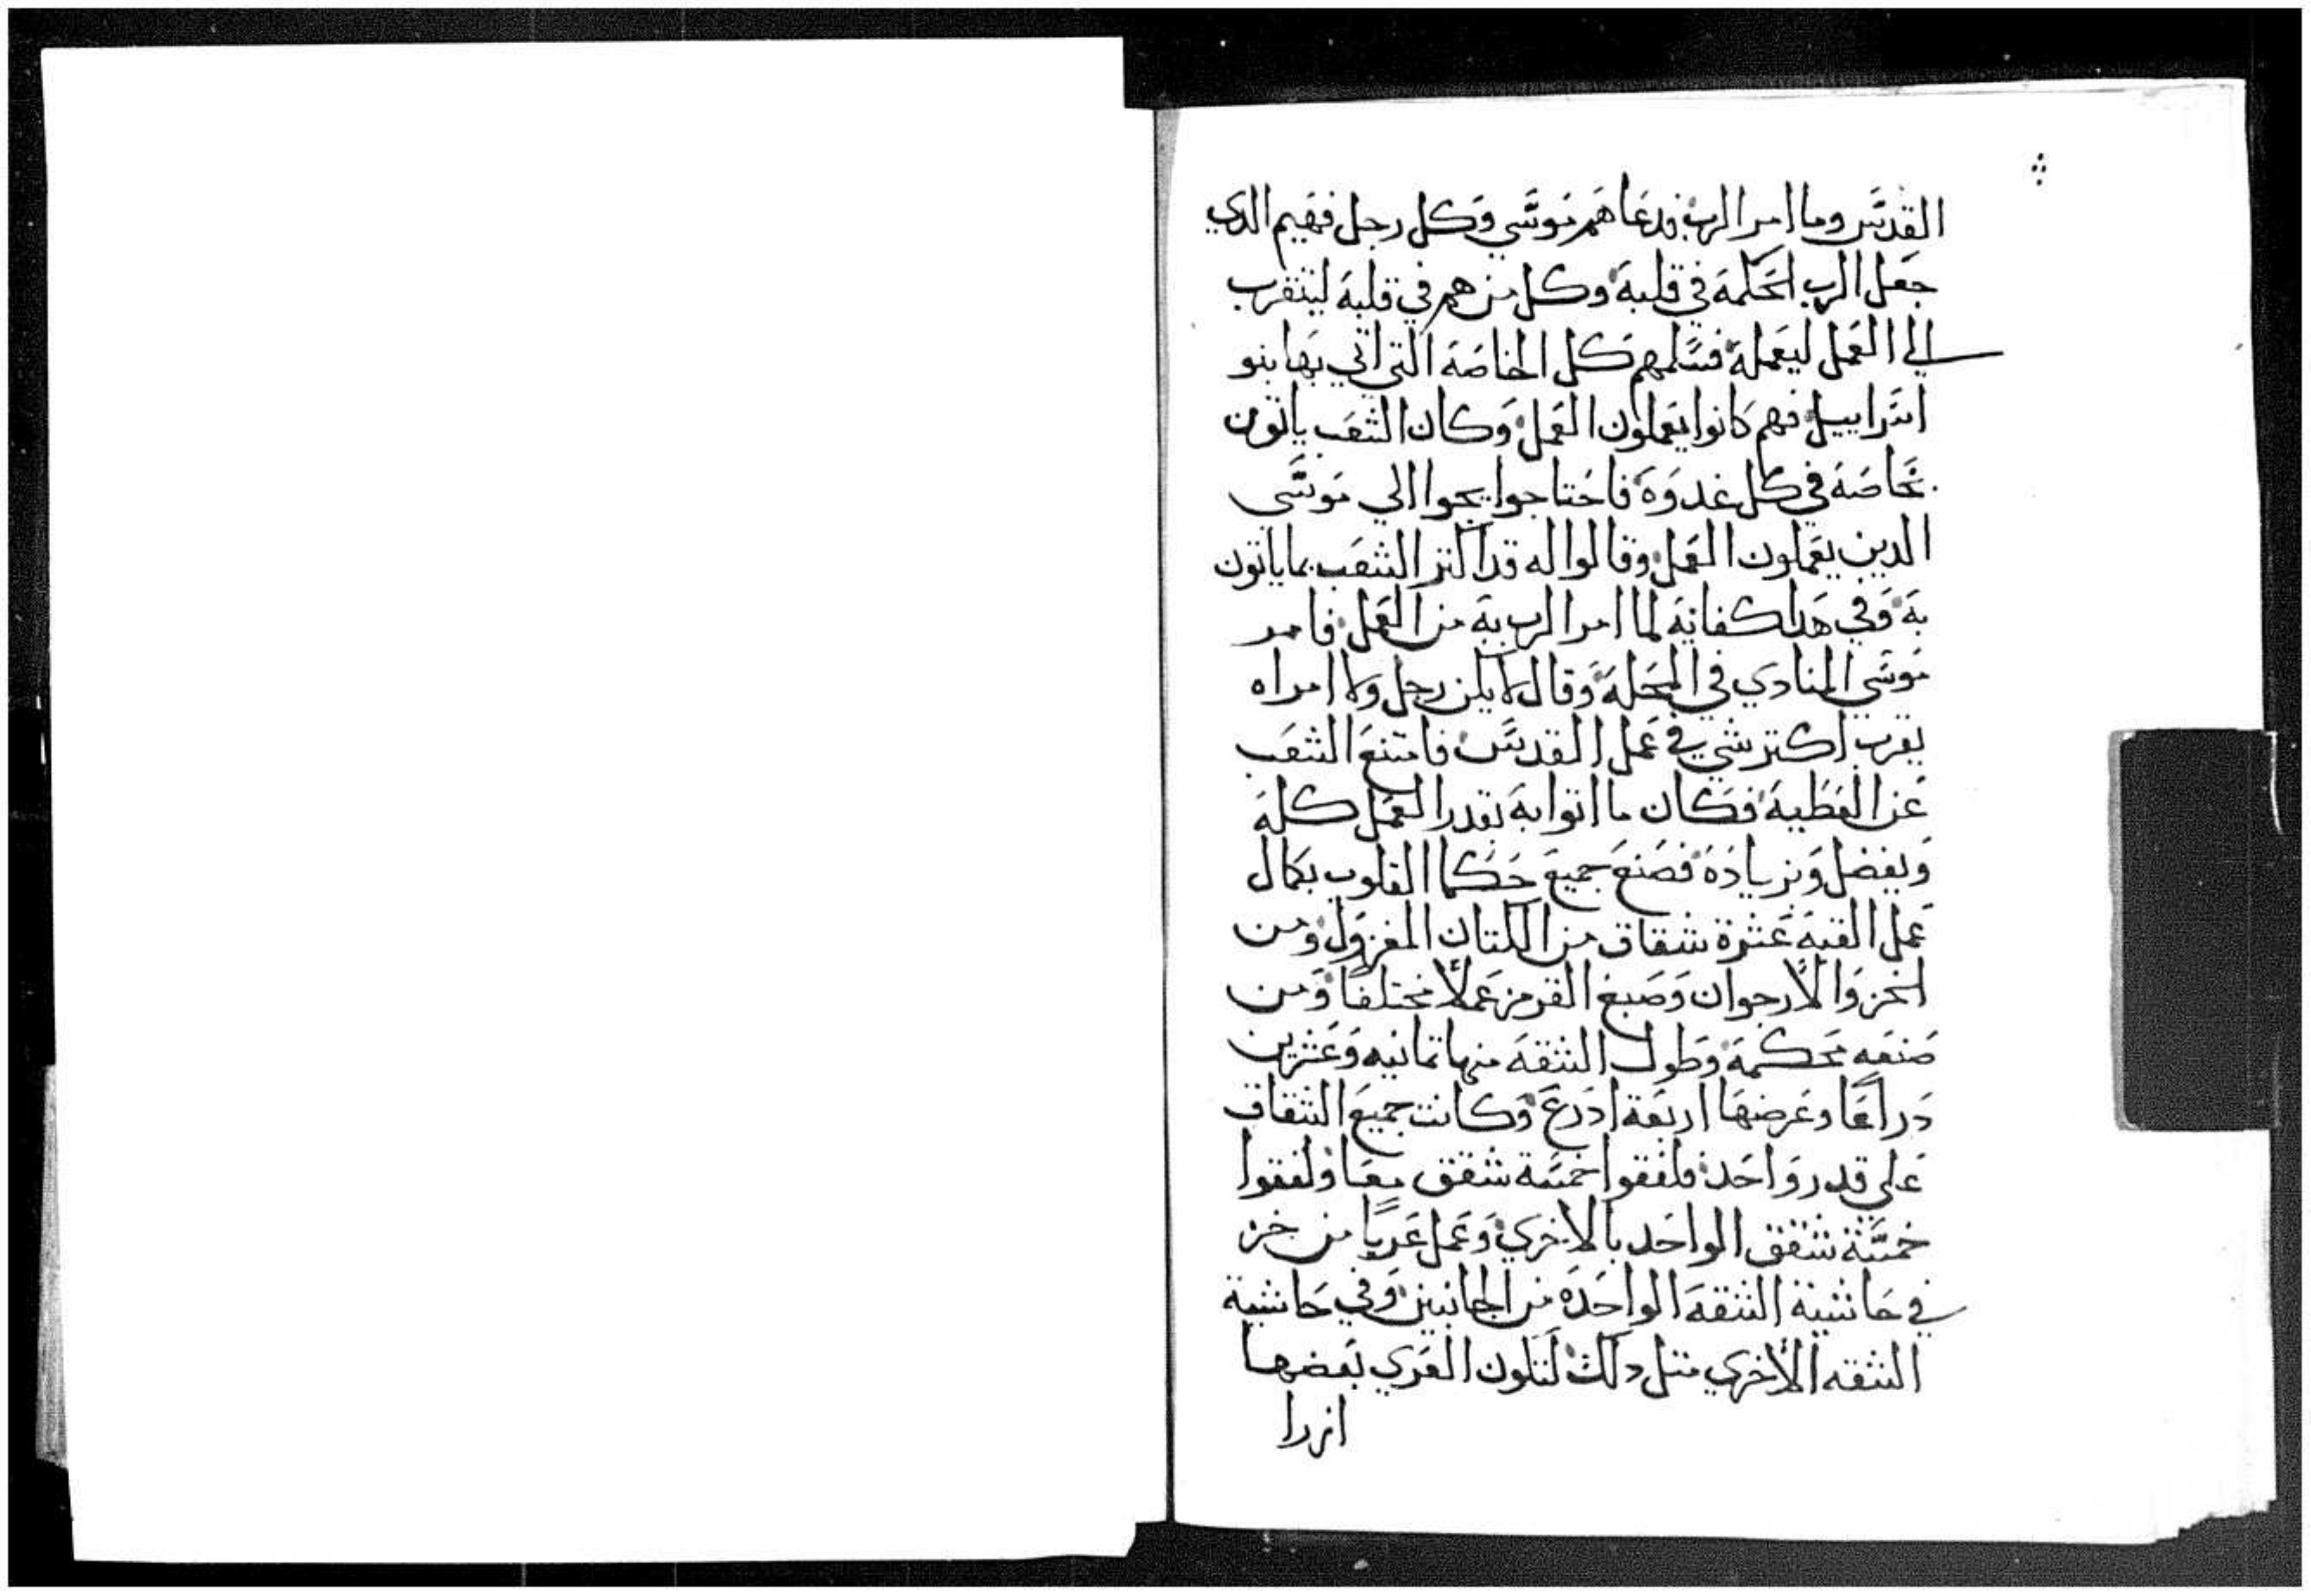 القدس وما امر الرب فدعاهم موسي وكل رجل فهيم الدي
جعل الرب الحكمة في قلبة وكل من هم في قلبة ليتقرب
الي العمل ليعملة فسلمهم كل الخاصة التي اتي بها بنو
اسراييل فهم كانوا يعملون العمل وكان الشعب ياتون
بخاصة في كل غدوة فاحتاجوا يجوا الي موسي
الدين يعملون العمل وقالوا له قد اكتر الشعب بما ياتون
بة وفي هدا كفاية لما امر الرب بة من العمل فامر
موسي المنادي في المحلة وقال لا يكن رجل ولا امراه
يقرب اكتر شي في عمل القدس فامتنع الشعب
عن العطية فكان ما اتوا بة بقدر العمل كلة
ويفضل وزيادة فصنع جميع حكما القلوب بكمال
عمل القبة عشرة شقاق من الكتان المغزول ومن
الخز والارجوان وصبغ القرمز عملا مختلفا ومن
صنعه محكمة وطول الشقة منها تمانيه وعشرين
دراعا وعرضها اربعة ادرع وكانت جميع الشقاق
علي قدر واحد فلفقوا خمسة شقق معا ولفقوا
خمسة شقق الواحد بالاخري وعمل عريا من خز
في حاشية الشقة الواحدة من الجانبين وفي حاشية
الشقه الاخري متل دلك لتكون العري بعضها
ازرا